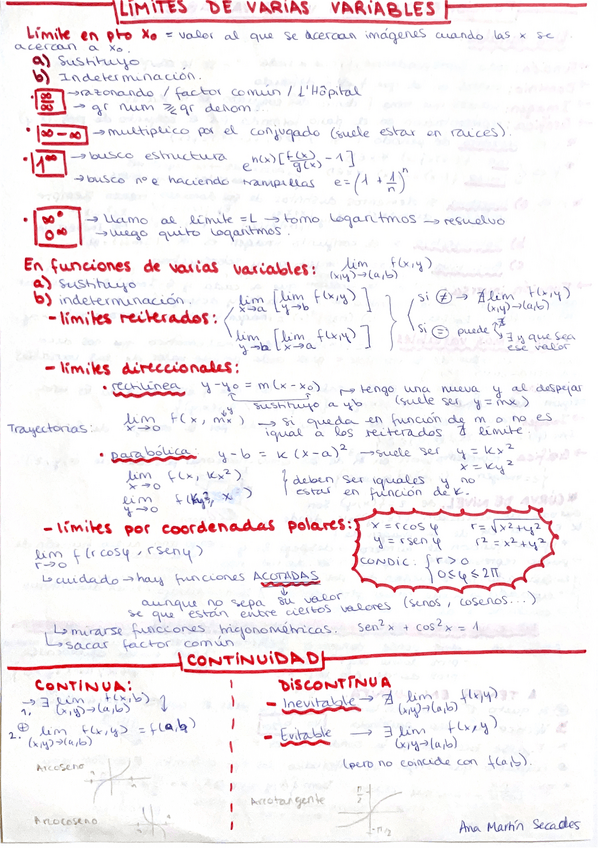 LÍMITES DE VARIAS VARIABLES
Límite en pto x₀ = valor al que se acercan imágenes cuando las x se
acercan a x₀.
a) Sustituyo
b) Indeterminación.
· ∞/∞ → razonando / factor común / L'Hôpital
→ gr num ≷ gr denom...
· ∞-∞ → multiplico por el conjugado (suele estar en raíces).
· 1^∞ → busco estructura e^h(x)[f(x)/g(x) - 1]
→ busco nº e haciendo trampillas e = (1 + 1/n)^n
· ∞⁰ 0^∞ → llamo al límite = L → tomo logaritmos → resuelvo
→ luego quito logaritmos.
En funciones de varias variables: lim (x,y)→(a,b) f(x,y)
a) sustituyo
b) indeterminación.
- límites reiterados: lim x→a [lim y→b f(x,y)]
lim y→b [lim x→a f(x,y)]
si ≠ → ∄ lim (x,y)→(a,b) f(x,y)
si = puede ∄
∃ y que sea
ese valor
- límites direccionales:
· rectilínea y-y₀ = m(x-x₀) → tengo una nueva y al despejar
sustituyo a y b (suele ser y=mx)
Trayectorias: lim x→0 f(x, mx) → si queda en función de m o no es
y
igual a los reiterados ∄ límite.
· parabólica: y-b = k(x-a)² → suele ser y = kx²
x = ky²
lim x→0 f(x, kx²)
lim y→0 f(ky², x)
deben ser iguales y no
estar en función de k.
- límites por coordenadas polares:
x = r cos φ r = √x²+y²
y = r sen φ r² = x²+y²
CONDIC. { r > 0
0 ≤ φ ≤ 2π
lim r→0 f(r cos φ, r sen φ)
↳ cuidado → hay funciones ACOTADAS
aunque no sepa su valor
se que están entre ciertos valores (senos, cosenos...)
↳ mirarse funciones trigonométricas. sen²x + cos²x = 1
↳ sacar factor común
CONTINUIDAD
CONTINUA:
1. → ∃ lim (x,y)→(a,b) f(x,b)
2. lim (x,y)→(a,b) f(x,y) = f(a,b)
DISCONTINUA
- Inevitable → ∄ lim (x,y)→(a,b) f(x,y)
- Evitable → ∃ lim (x,y)→(a,b) f(x,y)
(pero no coincide con f(a,b).
Arcoseno
Arcocoseno
Arcotangente
π/2
-π/2
Ana Martín Secades